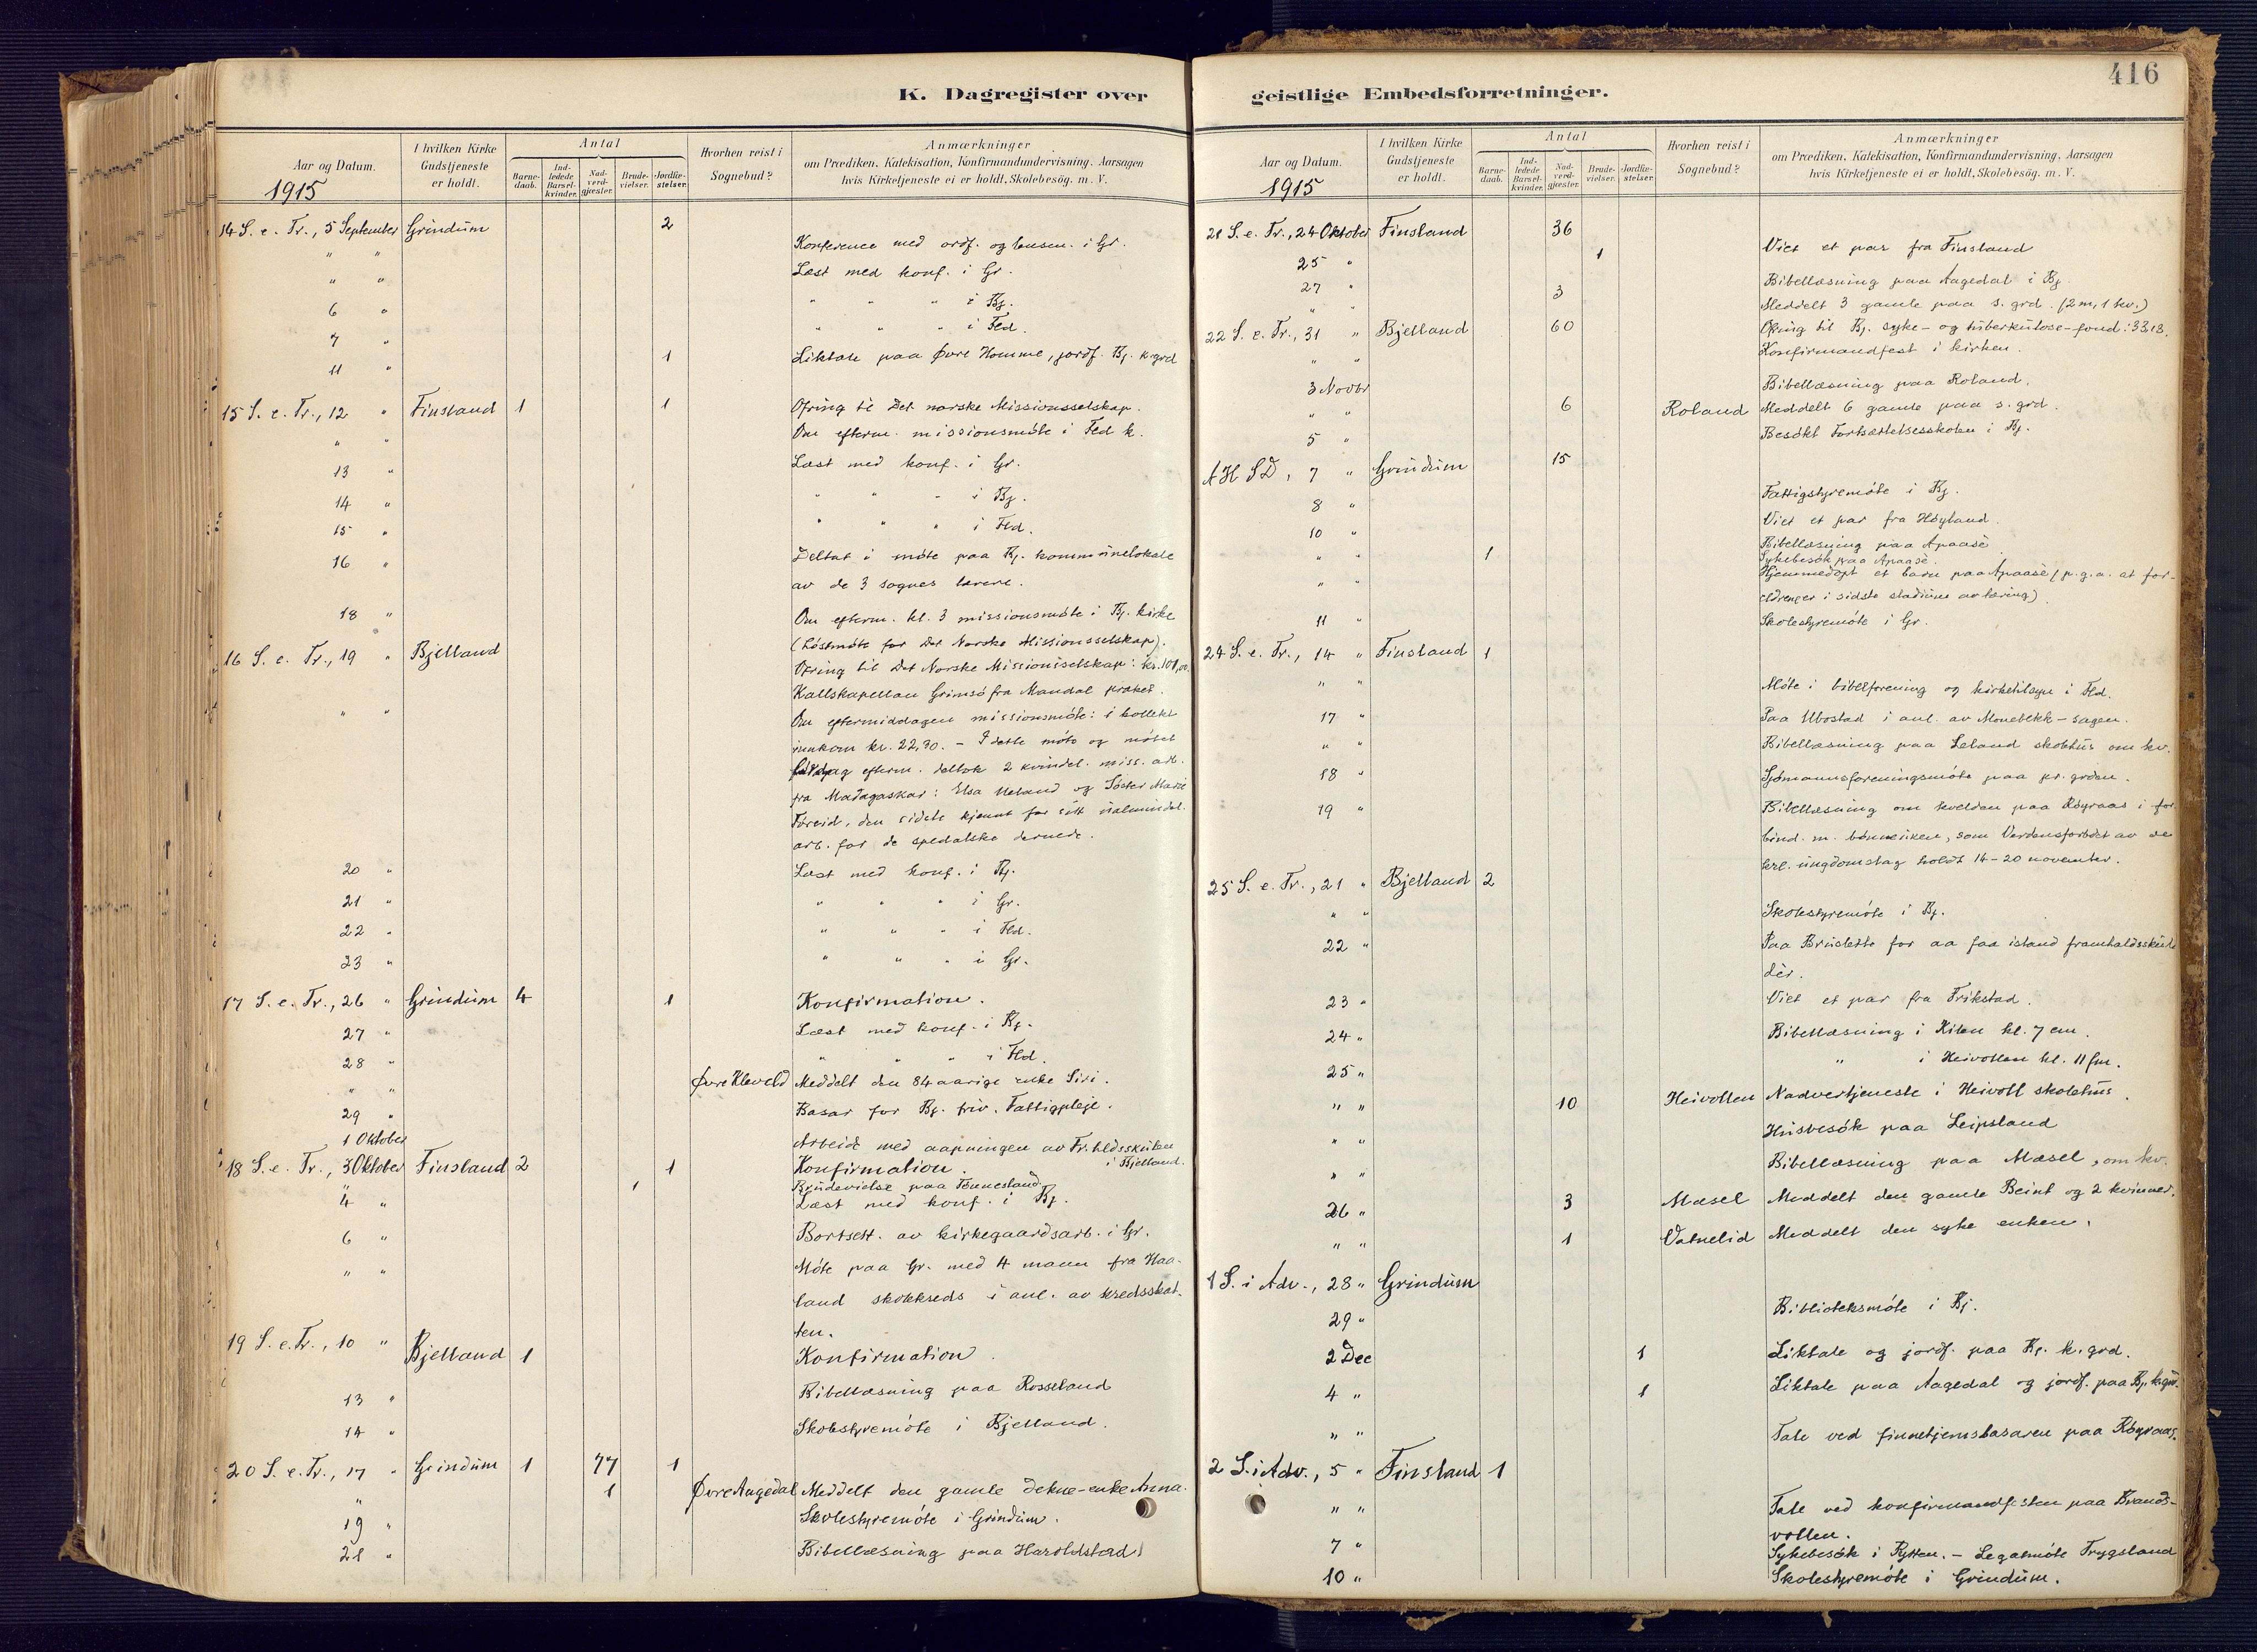 K. Dagregister over
Aar og Datum.
1915
I hvilken Kirke Gudstjeneste er holdt.
Antal
Barne-daab.
Ind-ledede Barsel-kvinder.
Nad-verd-gjæster.
Brude-vielser.
Jordfæ-stelser.
Hvorhen reist i Sognebud?
Anmærkninger
om Prædiken, Katekisation, Konfirmandundervisning, Aarsagen
hvis Kirketjeneste ei er holdt, Skolebesög. m. V.
14 S. e. Tr., 5 September Grindum 2
" " Konference med ordf. og lensm. i Gr.
" " Læst med konf. i Gr.
6 " " " " i Bj.
7 " " " " i Fld.
11 " 1 Liktale paa Øvre Homme, jordf. Bj. k.grd
15 S. e. Tr., 12 " Finsland 1 1 Ofring til Det norske Missionsselskap.
" " Om efterm. missionsmöte i Fld k.
13 " Læst med konf. i Gr.
14 " " " " i Bj.
15 " " " " i Fld.
16 " Deltat i möte paa Bj. kommunelokale
av de 3 sognes lærere.
18 " Om efterm. kl. 3 missionsmöte i Bj. kirke
(Höstmöte for Det Norske Missionsselskap).
16 S. e. Tr., 19 " Bjelland Ofring til Det Norske Missionsselskap: kr. 101,00
Kallskapellan Grimsö fra Mandal præket.
" " Om eftermiddagen missionsmöte: i kollekt
innkom kr. 22,70. - I dette möte og mötet
efterm. deltok 2 kvindel. miss. arb.
fra Madagaskar: Elsa Ueland og Söster Marie
Föreid, den sidste kjennt for sitt ualmindel.
arb. for de spedalske dernede.
20 " Læst med konf. i Bj.
21 " " " " i Gr.
22 " " " " i Fld.
23 " " " " i Gr.
17 S. e. Tr., 26 " Grindum 4 1 Konfirmation.
27 " Læst med konf. i Bj.
28 " " " " i Fld.
" " Øvre Kleveld Meddelt den 84 aarige enke Siri.
29 " Basar for Bj. friv. Fattigpleje.
1 Oktober Arbeide med aapningen av Fr.hldsskulen
i Bjelland.
18 S. e. Tr., 3 Oktober Finsland 2 1 Konfirmation.
" 1 Brudevielse paa Fønnesland
4 " Læst med konf. i Bj.
6 " Bortsett. av kirkegaardsarb. i Gr.
" " Möte paa Gr. med 4 mann fra Haa-
land skolkreds i anl. av kredsskat-
ten.
19 S. e. Tr., 10 " Bjelland 1 Konfirmation.
13 " Bibellæsning paa Rosseland
14 " Skolestyremöte i Bjelland.
20 S. e. Tr., 17 " Grindum 1 77 1
" 1 Øvre Aagedal Meddelt den gamle dekne-enke Anna.
19 " Skolestyremöte i Grindum.
21 " Bibellæsning paa Haroldstad
geistlige Embedsforretninger.
416
Aar og Datum.
1915
I hvilken Kirke Gudstjeneste er holdt.
Antal
Barne-daab.
Ind-ledede Barsel-kvinder.
Nad-verd-gjæster.
Brude-vielser.
Jordfæ-stelser.
Hvorhen reist i Sognebud?
Anmærkninger
om Prædiken, Katekisation, Konfirmandundervisning, Aarsagen
hvis Kirketjeneste ei er holdt, Skolebesög. m. V.
21 S. e. Tr., 24 Oktober Finsland 36
25 " 1 Viet et par fra Finsland
27 " Bibellæsning paa Aagedal i Bj.
" " 3 Meddelt 3 gamle paa s. grd. (2 m, 1 kv.)
22 S. e. Tr., 31 " Bjelland 60 Ofring til Bj. syke- og tuberkulose-fond: 33,13.
" " Konfirmandfest i kirken.
3 Novbr Bibellæsning paa Roland.
" " 6 Roland Meddelt 6 gamle paa s. grd.
5 " Besökt Fortsættelsesskolen i Bj.
A H S D, 7 " Grindum 15
8 " Fattigstyremöte i Bj.
10 " Viet et par fra Höyland.
Bibellæsning paa Apaase
" " 1 Sykebesök paa Apaase.
" " Hjemmedöpt et barn paa Apaase (p.g.a. at for-
eldrene er i sidste stadium av tæring)
11 " Skolestyremöte i Gr.
24 S. e. Tr., 14 " Finsland 1
" " Möte i bibelforening og kirketilsyn i Fld.
17 " Paa Ubostad i anl. av Monebekk-sagen.
" " Bibellæsning paa Leland skolehus om kv.
18 " Sjömannsforeningsmöte paa pr. grden.
19 " Bibellæsning om kvelden paa Röyraas i for-
bind. m. bönneuken, som Verdensforbdet av de
krl. ungdomslag holdt 14-20 november.
25 S. e. Tr., 21 " Bjelland 2
" " Skolestyremöte i Bj.
22 " Paa Bruslette for aa faa istand framhaldsskule
der.
23 " Viet et par fra Frikstad.
24 " Bibellæsning i Kilen kl. 7 em.
25 " " i Heivollen kl. 11 fm.
" " 10 Heivollen Nadvertjeneste i Heivoll skolehus.
" " Husbesök paa Leipsland
" " Bibellæsning paa Mæsel, om kv.
26 " 3 Mæsel Meddelt den gamle Beint og 2 kvinner.
" " 1 Vatnelid Meddelt den syke enken.
1 S. i Adv., 28 " Grindum
29 " Biblioteksmöte i Bj.
2 Dec 1 Liktale og jordf. paa Bj. k. grd.
4 " 1 Liktale paa Aagedal og jordf. paa Bj. k.grd.
" " Tale ved finnehjemsbasaren paa Röyraas.
2 S. i Adv., 5 " Finsland 1
" " Tale ved konfirmandfesten paa Brands-
vollen.
7 " Sykebesök i Rytten. - Legatmöte Trygsland
10 " Skolestyremöte i Grindum.